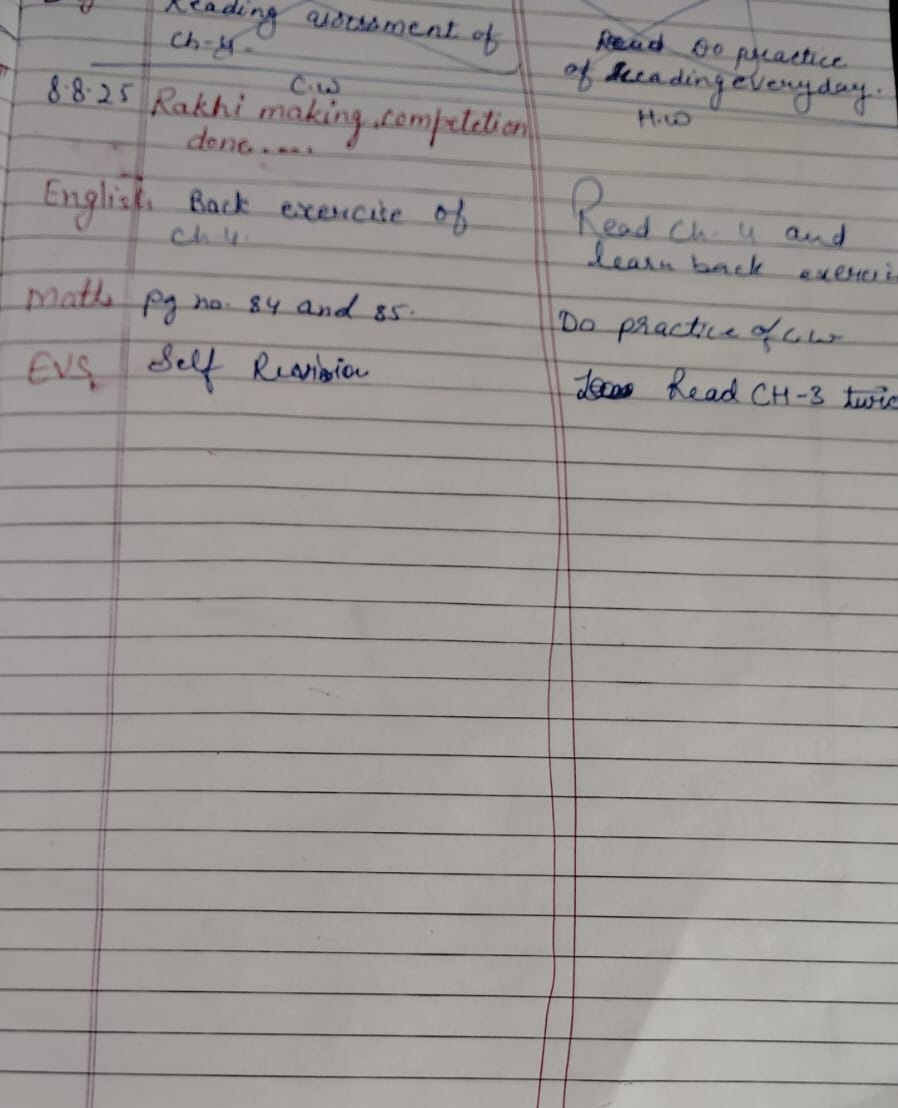 Reading assessment of
Ch-4.
Read Do practice
of Reading everyday.
8.8.25
C.W
H.W
Rakhi making competition
done....
English Back exercise of
Ch 4.
Read Ch. 4 and
learn back exerci
Maths Pg no. 84 and 85.
Do practice of C.W
EVS Self Revision
Read CH-3 twic